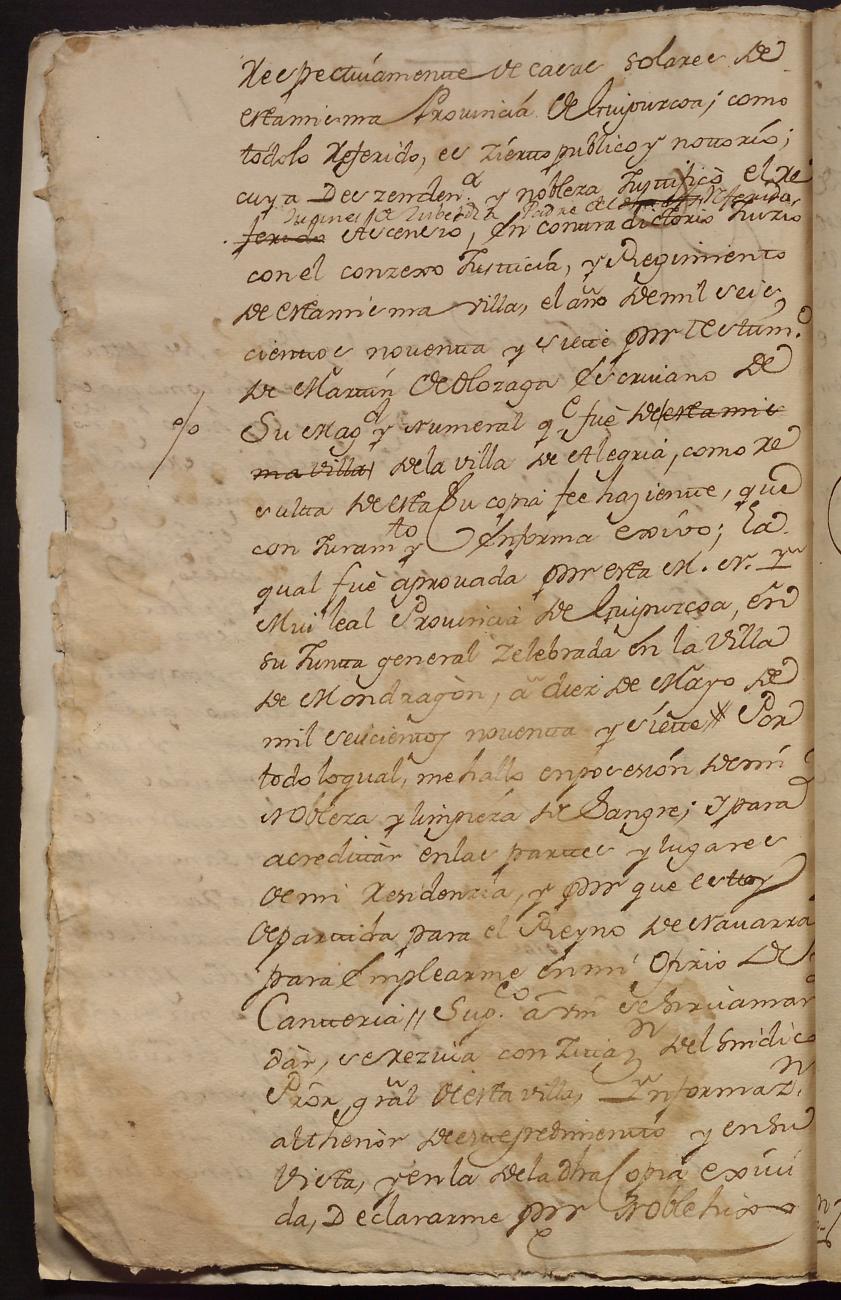 Respectiuamente de casas solares de
esta misma Prouincia de Guipuzcoa; como
todo lo Referido, es zierto publico y nottorio;
cuya Deszenden.ª y nobleza Justificò el Re
Padre del Referido
ferido Ascensio, en contradictorio Juizio
con el conzexo Justicia, y Regimiento
de esta misma villa, el año de mil seis
cientos nouenta y siete por testim.º
de Martin de Olozaga Escriuano de
%
Su Mag.d y Numeral q.e fuè de esta mis
ma villa de la villa de Alegria, como re
sulta de esta su copia fee haziente, que
con Juram.to y en forma exivo; la
qual fuè aprouada por esta M. N. Y
Mui leal Prouincia de Guipuzcoa, en
su Junta general zelebrada en la Villa
de Mondragòn, à diez de Mayo de
mil seiscientos nouenta y siete // Por
todo lo qual, me hallo en posesión de mi
Nobleza y limpieza de Sangre; y para
acreditàr en las partes y lugares
de mi Residenzia, y por que estoy
de partida para el Reyno de Navarra
para Emplearme en mi Ofizio de
Canteria // Sup.co à Vm se sirua man
dàr, se reziua con Zitaz.n del Sindico
Pròr grâl de esta villa, Ynformaz.n
al thenòr de este pedimiento y en su
Vista, y en la de la dha Copia exiui
da, Declararme por Noble hixo